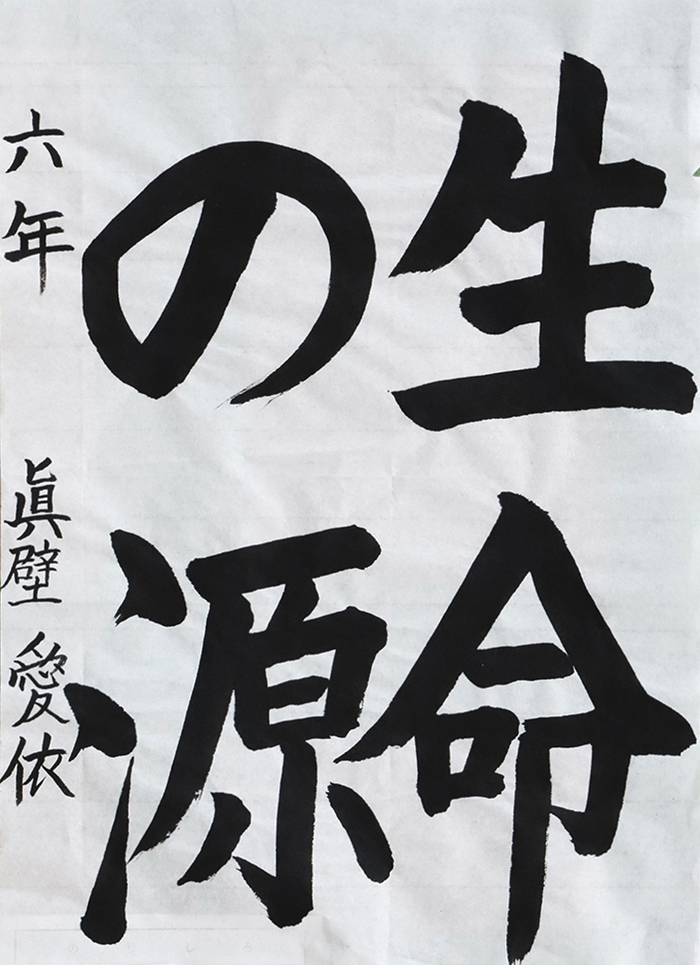 生命
の源
六年 眞壁愛依